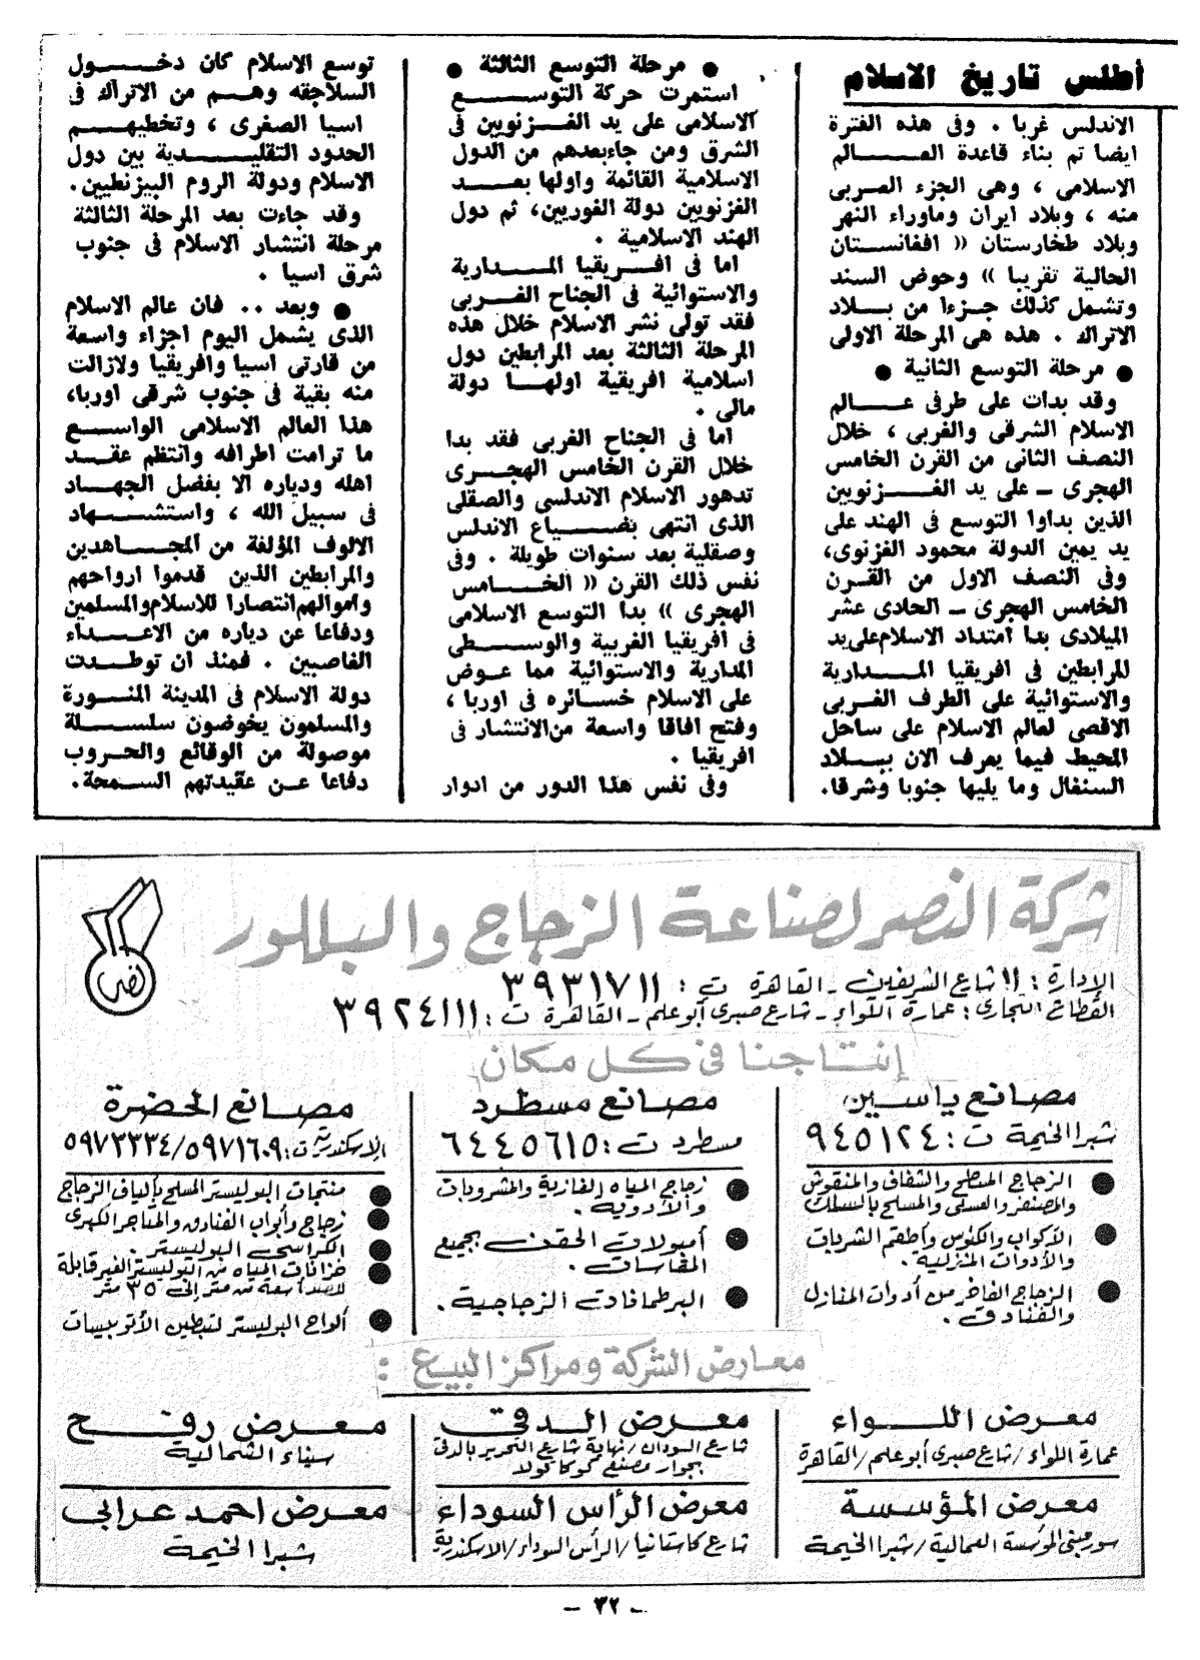 أطلس تاريخ الاسلام
الاندلس غربا . وفى هذه الفترة
ايضا تم بناء قاعدة العالم
الاسلامى ، وهى الجزء العربى
منه ، وبلاد ايران وماوراء النهر
وبلاد طخارستان « افغانستان
الحالية تقريبا » وحوض السند
وتشمل كذلك جزءا من بلاد
الاتراك . هذه هى المرحلة الاولى
● مرحلة التوسع الثانية ●
وقد بدات على طرفى عالم
الاسلام الشرقى والغربى ، خلال
النصف الثانى من القرن الخامس
الهجرى ـ على يد الغزنويين
الذين بداوا التوسع فى الهند على
يد يمين الدولة محمود الغزنوى،
وفى النصف الاول من القرن
الخامس الهجرى ـ الحادى عشر
الميلادى بدا امتداد الاسلام على يد
المرابطين فى افريقيا المدارية
والاستوائية على الطرف الغربى
الاقصى لعالم الاسلام على ساحل
المحيط فيما يعرف الان ببلاد
السنغال وما يليها جنوبا وشرقا.
● مرحلة التوسع الثالثة ●
استمرت حركة التوسع
الاسلامى على يد الغزنويين فى
الشرق ومن جاءبعدهم من الدول
الاسلامية القائمة واولها بعد
الغزنويين دولة الغوريين، ثم دول
الهند الاسلامية .
اما فى افريقيا المدارية
والاستوائية فى الجناح الغربى
فقد تولى نشر الاسلام خلال هذه
المرحلة الثالثة بعد المرابطين دول
اسلامية افريقية اولها دولة
مالى .
اما فى الجناح الغربى فقد بدا
خلال القرن الخامس الهجرى
تدهور الاسلام الاندلسى والصقلى
الذى انتهى بضياع الاندلس
وصقلية بعد سنوات طويلة . وفى
نفس ذلك القرن « الخامس
الهجرى » بدا التوسع الاسلامى
فى افريقيا الغربية والوسطى
المدارية والاستوائية مما عوض
على الاسلام خسائره فى اوربا ،
وفتح افاقا واسعة من الانتشار فى
افريقيا .
وفى نفس هذا الدور من ادوار
توسع الاسلام كان دخول
السلاجقه وهم من الاتراك فى
اسيا الصغرى ، وتخطيهم
الحدود التقليدية بين دول
الاسلام ودولة الروم البيزنطيين.
وقد جاءت بعد المرحلة الثالثة
مرحلة انتشار الاسلام فى جنوب
شرق اسيا .
● وبعد .. فان عالم الاسلام
الذى يشمل اليوم اجزاء واسعة
من قارتى اسيا وافريقيا ولازالت
منه بقية فى جنوب شرقى اوربا،
هذا العالم الاسلامى الواسع
ما ترامت اطرافه وانتظم عقد
اهله ودياره الا بفضل الجهاد
فى سبيل الله ، واستشهاد
الالوف المؤلفة من المجاهدين
والمرابطين الذين قدموا ارواحهم
واموالهم انتصارا للاسلام والمسلمين
ودفاعا عن دياره من الاعداء
الغاصبين . فمنذ ان توطدت
دولة الاسلام فى المدينة المنورة
والمسلمون يخوضون سلسلة
موصولة من الوقائع والحروب
دفاعا عن عقيدتهم السمحة.
شركة النصر لصناعة الزجاج والبللور
نصر
الإدارة : ١١ شارع الشريفين ـ القاهرة ت : ٣٩٣١٧١١
القطاع التجارى : عمارة اللواء ـ شارع صبرى أبو علم ـ القاهرة ت : ٣٩٢٤١١١
إنتاجنا فى كل مكان
مصانع ياسين
شبرا الخيمة ت : ٩٤٥١٢٤
● الزجاج المسطح والشفاف والمنقوش
والمصنفر والعسلى والمسلح بالسلك
● الأكواب والكئوس وأطقم الشربات
والأدوات المنزلية .
● الزجاج الفاخر من أدوات المنازل
والفنادق .
مصانع مسطرد
مسطرد ت : ٦٤٤٥٦١٥
● زجاج المياه الغازية والمشروبات
والأدوية .
● أمبولات الحقن بجميع
المقاسات .
● البرطمانات الزجاجية .
مصانع الحضرة
الاسكندرية ت : ٥٩٧١٦٠٩/٥٩٧٣٣٣٤
● منتجات البوليستر المسلح بألياف الزجاج
● زجاج وأبواب الفنادق والمتاجر الكبرى
● الكراسى البوليستر .
● خزانات المياه من البوليستر الغير قابلة
للصدأ سعة من متر إلى ٣٥ متر
● ألواح البوليستر لتبطين الأتوبيسات
معارض الشركة ومراكز البيع :
معرض اللواء
عمارة اللواء / شارع صبرى أبو علم / القاهرة
معرض المؤسسة
سور مبنى المؤسسة العمالية / شبرا الخيمة
معرض الدقى
شارع السودان / نهاية شارع التحرير بالدقى
بجوار مصنع كوكاكولا
معرض الرأس السوداء
شارع كاستانيا / الرأس السوداء / الاسكندرية
معرض رفح
سيناء الشمالية
معرض احمد عرابى
شبرا الخيمة
ـ ٣٢ ـ